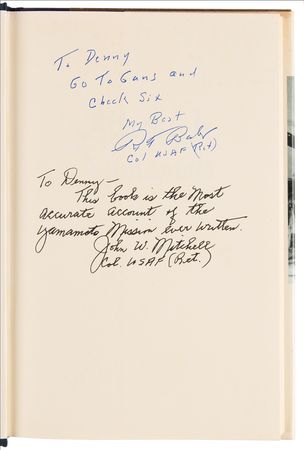 To Denny
Go To Guns and
Check Six
My Best
Col USAF (Ret)
To Denny—
This books is the most
accurate account of the
Yamamoto Mission ever written.
John W. Mitchell
Col. USAF (Ret.)